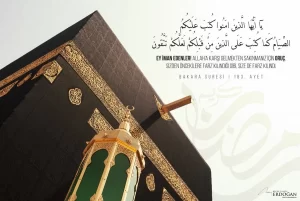 يَا أَيُّهَا الَّذِينَ آمَنُوا كُتِبَ عَلَيْكُمُ
الصِّيَامُ كَمَا كُتِبَ عَلَى الَّذِينَ مِنْ قَبْلِكُمْ لَعَلَّكُمْ تَتَّقُونَ
EY İMAN EDENLER! ALLAH'A KARŞI GELMEKTEN SAKINMANIZ İÇİN ORUÇ,
SİZDEN ÖNCEKİLERE FARZ KILINDIĞI GİBİ, SİZE DE FARZ KILINDI.
BAKARA SURESİ | 183. AYET
ERDOĞAN